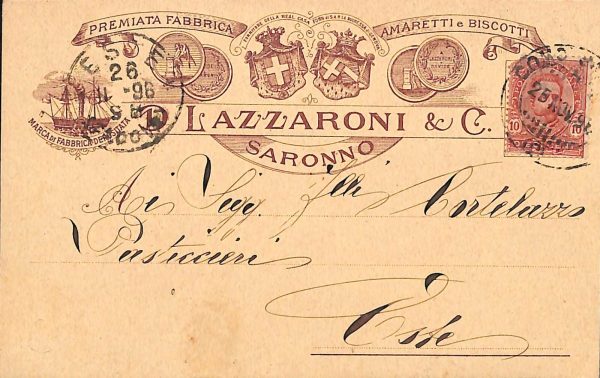 PREMIATA FABBRICA
AMARETTI e BISCOTTI
LAZZARONI & C.
SARONNO
MARCA DI FABBRICA DEPOSITATA
26
96
10 10
Ai Sigg. flli Cortelazzo
Pasticcieri
Este